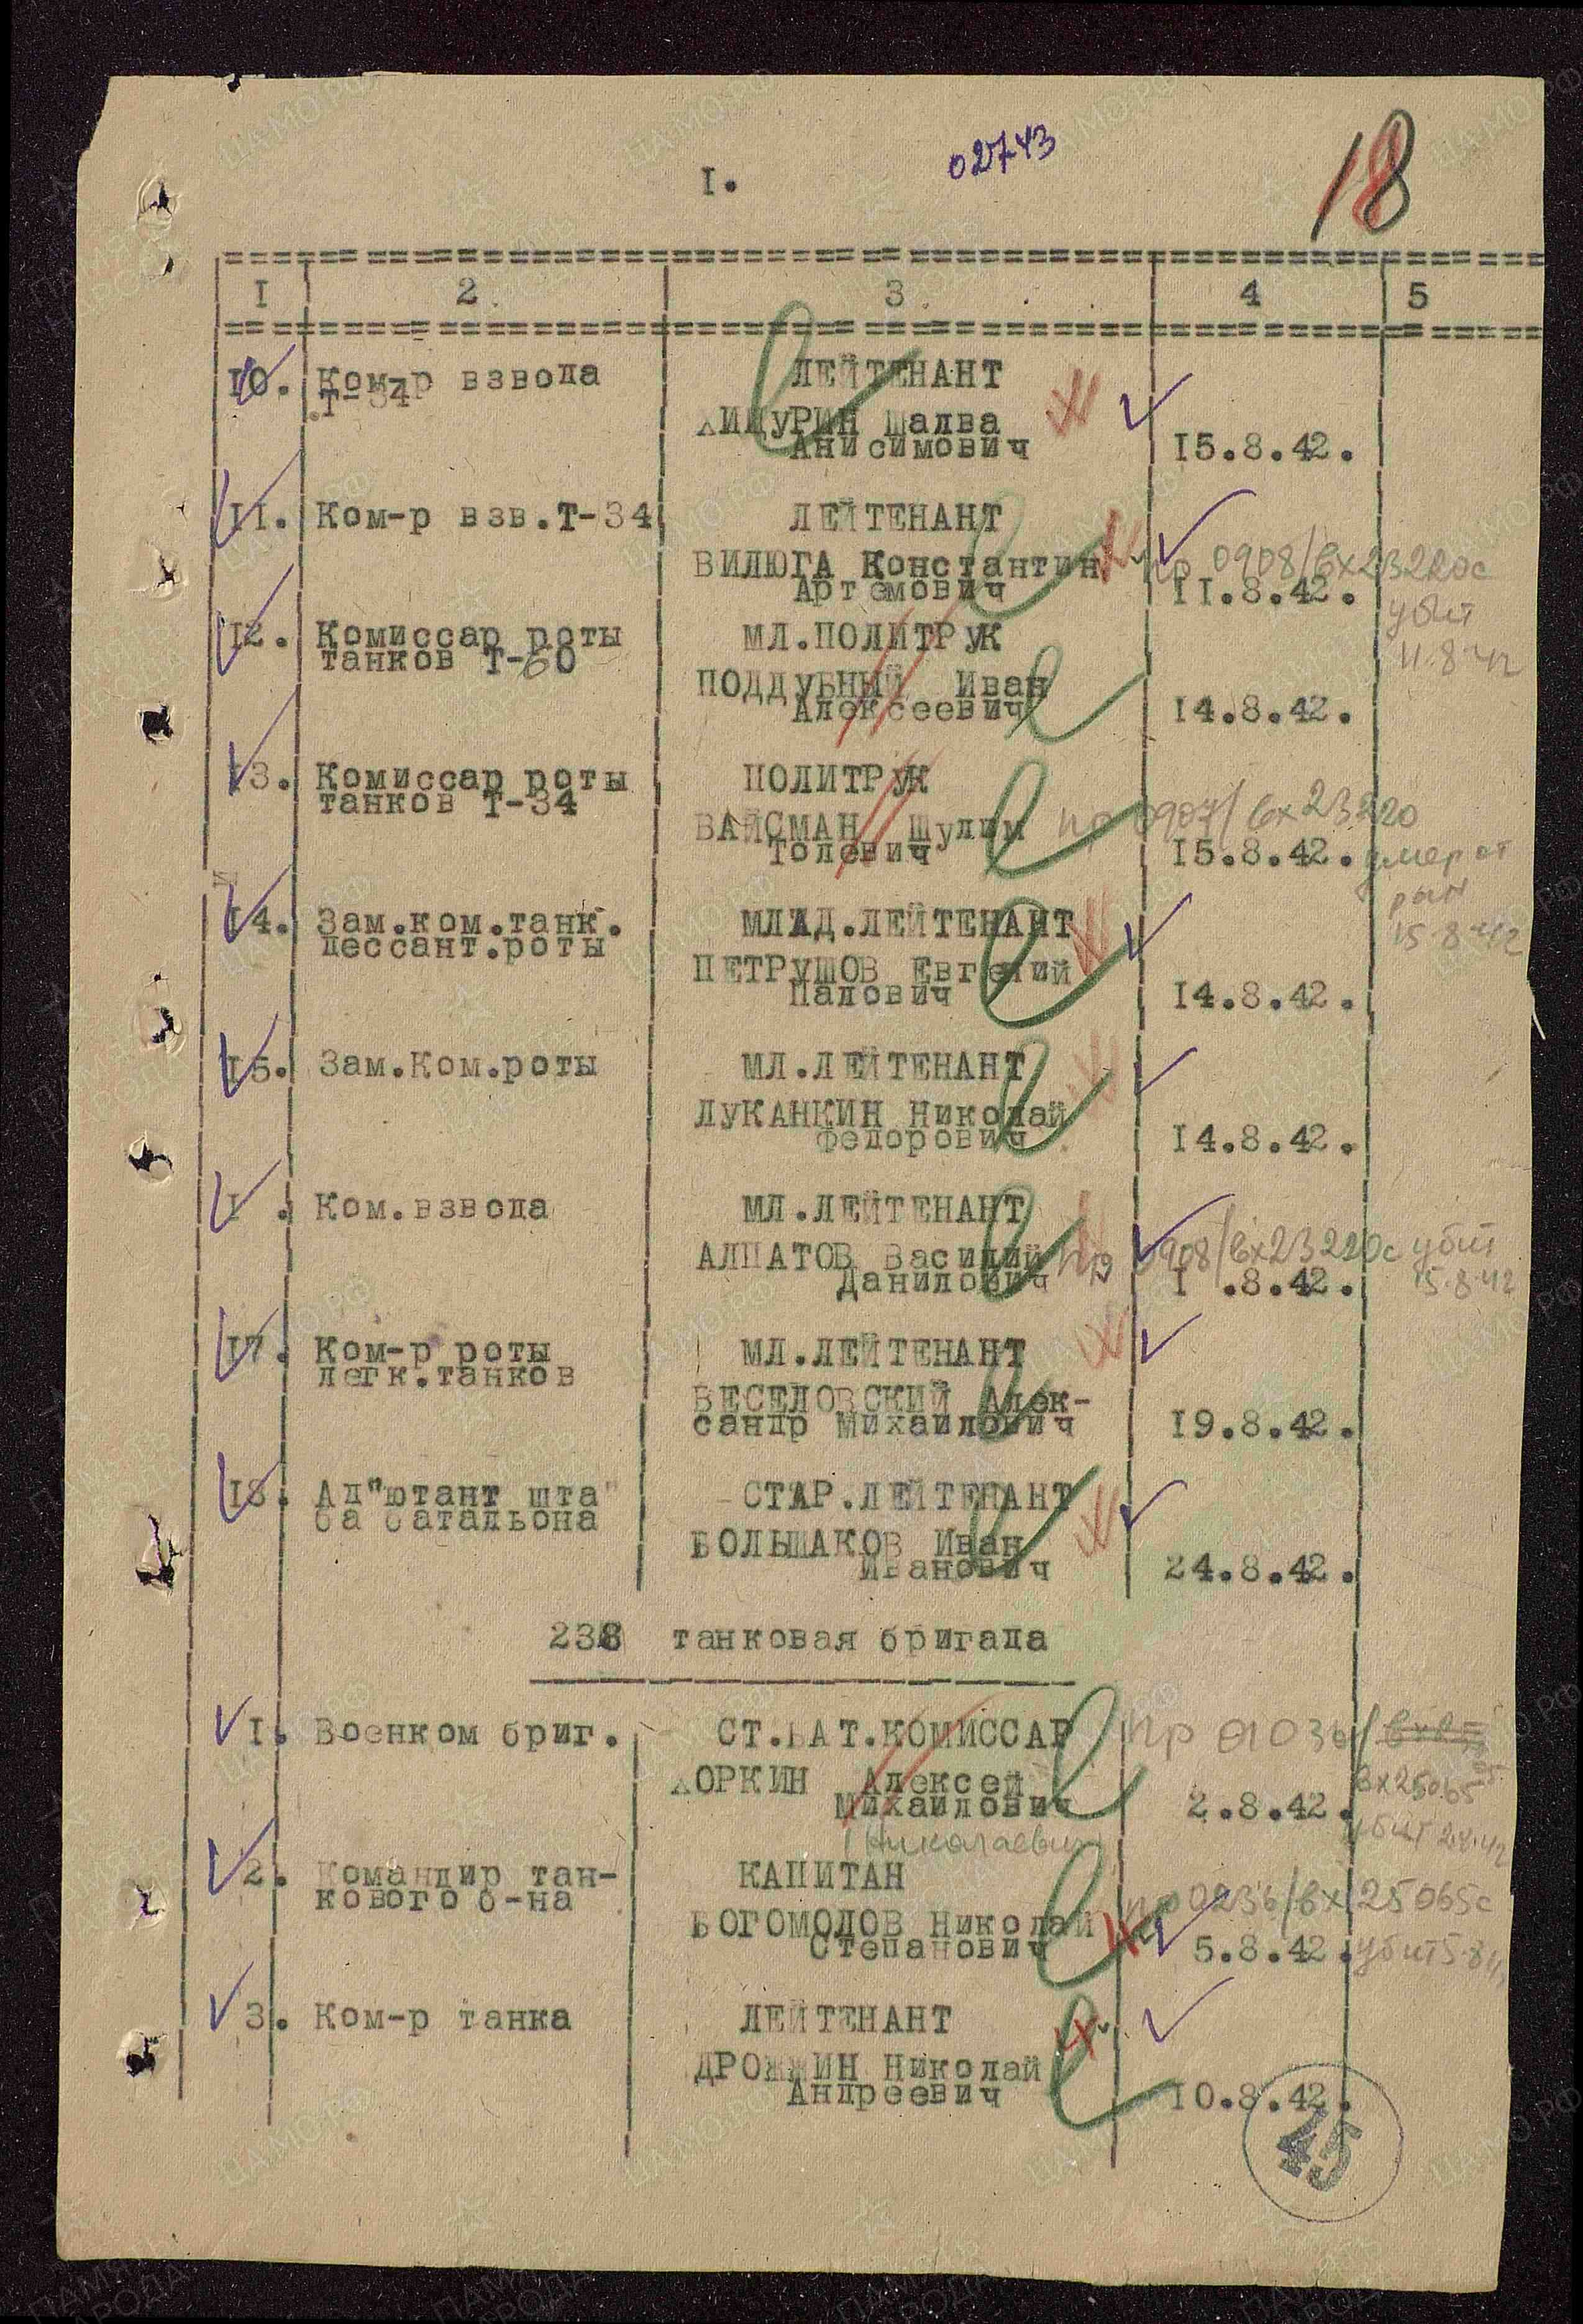 02743
18
I.
I 2. 3. 4 5
10. Ком-р взвода ЛЕЙТЕНАНТ
Т-34
Шалва
Анисимович 15.8.42.
11. Ком-р взв.Т-34 ЛЕЙТЕНАНТ
ВИЛЮГА Константин пр 0908/вх23220с
Артемович 11.8.42. убит
11.8.42
12. Комиссар роты МЛ.ПОЛИТРУК
танков Т-60
ПОДДУБНЫЙ Иван
Алексеевич 14.8.42.
13. Комиссар роты ПОЛИТРУК
танков Т-34
ВАЙСМАН Шулим пр 0907/вх23220
Толевич 15.8.42. умер от
ран
15.8.42
14. Зам.ком.танк. МЛАД.ЛЕЙТЕНАНТ
дессант.роты
ПЕТРУШОВ Евгений
Палович 14.8.42.
15. Зам.Ком.роты МЛ.ЛЕЙТЕНАНТ
ЛУКАНКИН Николай
Федорович 14.8.42.
1 . Ком.взвода МЛ.ЛЕЙТЕНАНТ
АЛПАТОВ Василий пр 0908/вх23220с убит
Данилович 1 .8.42. 15.8.42
17. Ком-р роты МЛ.ЛЕЙТЕНАНТ
легк.танков
ВЕСЕЛОВСКИЙ Алек-
сандр Михаилович 19.8.42.
18. Ад"ютант шта" СТАР.ЛЕЙТЕНАНТ
ба батальона
БОЛЬШАКОВ Иван
Иванович 24.8.42.
238 танковая бригада
1. Военком бриг. СТ.БАТ.КОМИССАР пр
ХОРКИН Алексей вх25065
Михаилович 2.8.42. убит 2.8.42
(Николаевич)
2. Командир тан- КАПИТАН
кового б-на пр 0236/вх25065с
БОГОМОЛОВ Николай
Степанович 5.8.42. убит 5.8
3. Ком-р танка ЛЕЙТЕНАНТ
ДРОЖЖИН Николай
Андреевич 10.8.42.
45